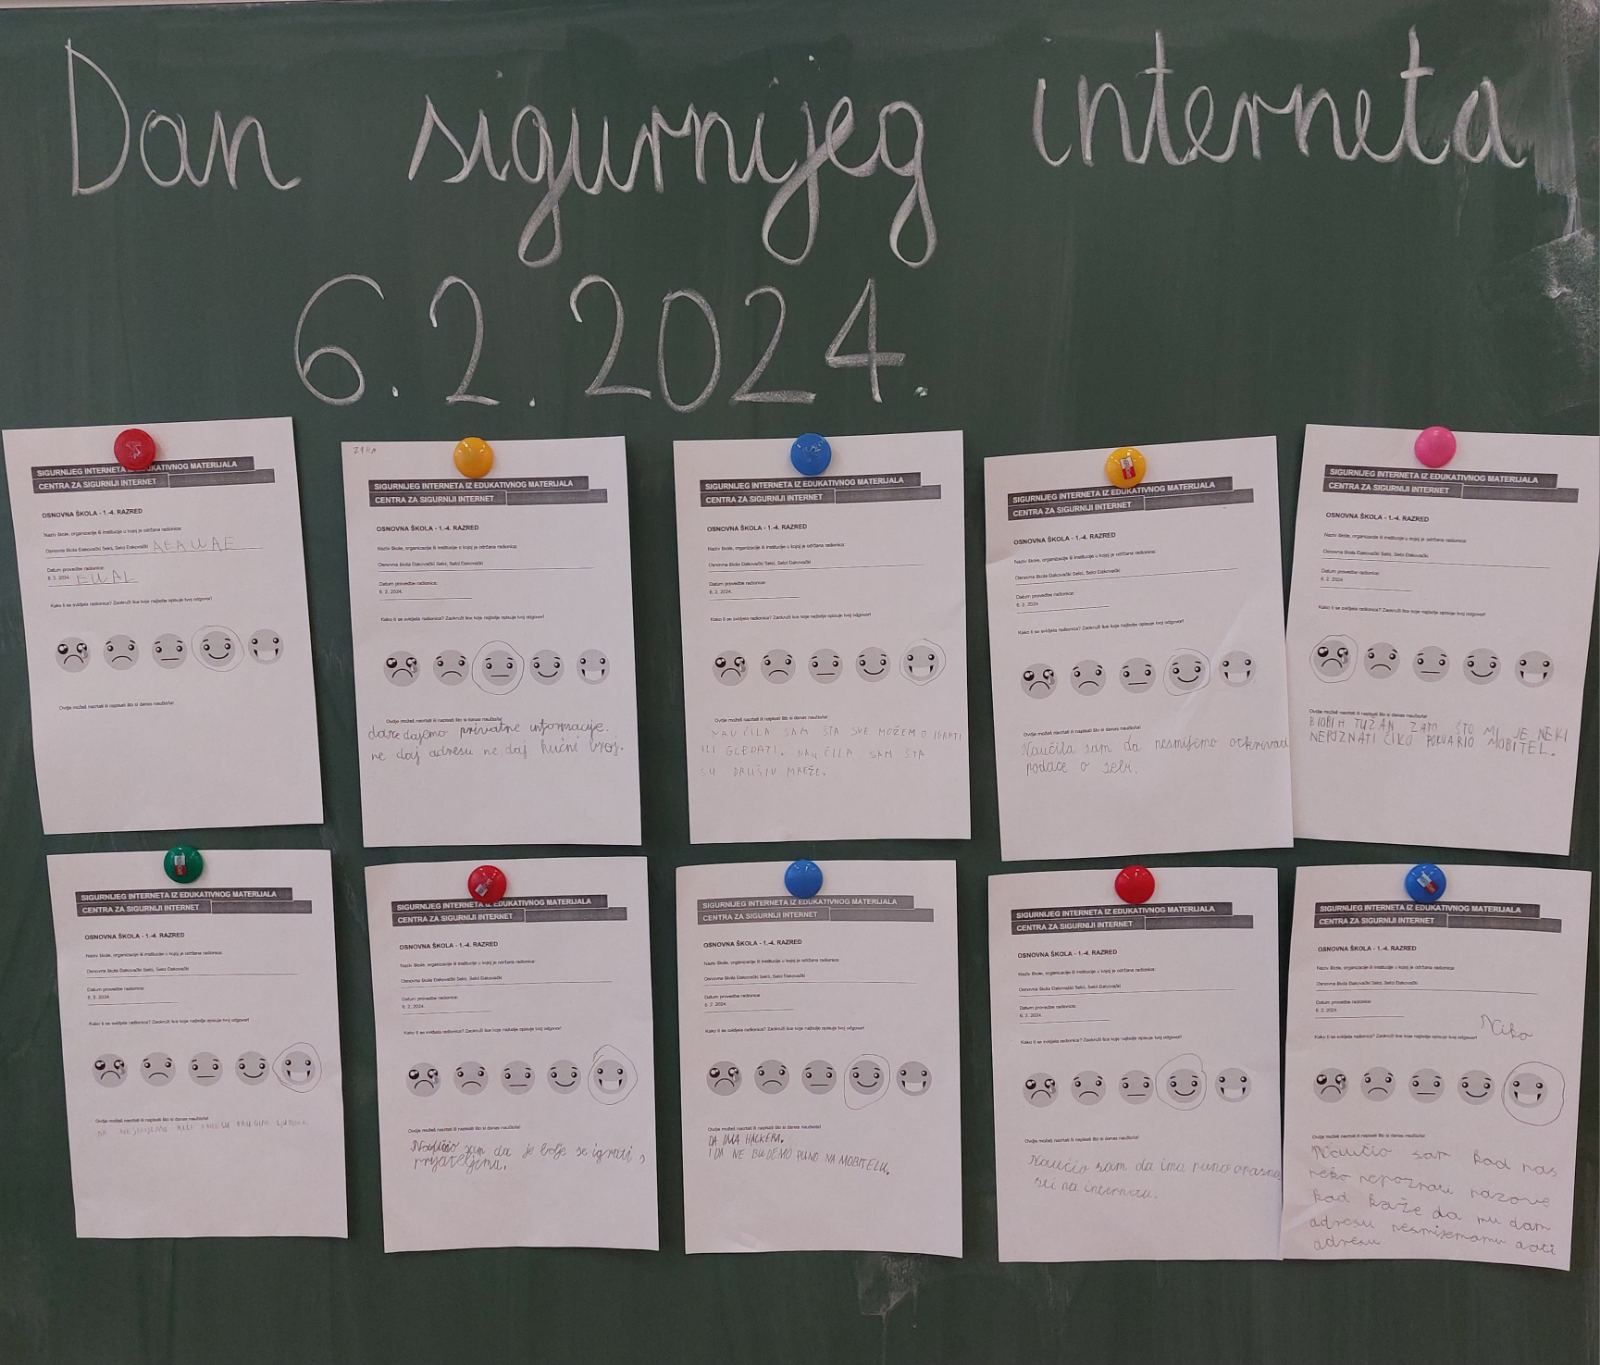 Dan sigurnijeg interneta
6.2.2024.
SIGURNIJEG INTERNETA IZ EDUKATIVNOG MATERIJALA
CENTRA ZA SIGURNIJI INTERNET
OSNOVNA ŠKOLA - 1.-4. RAZRED
Naziv škole, organizacije ili institucije u kojoj je održana radionica:
Osnovna škola Đakovački Selci, Selci Đakovački
Datum provedbe radionice:
6. 2. 2024.
Kako ti se svidjela radionica? Zaokruži lice koje najbolje opisuje tvoj odgovor!
Ovdje možeš nacrtati ili napisati što si danas naučio/la!
SIGURNIJEG INTERNETA IZ EDUKATIVNOG MATERIJALA
CENTRA ZA SIGURNIJI INTERNET
OSNOVNA ŠKOLA - 1.-4. RAZRED
Naziv škole, organizacije ili institucije u kojoj je održana radionica:
Osnovna škola Đakovački Selci, Selci Đakovački
Datum provedbe radionice:
6. 2. 2024.
Kako ti se svidjela radionica? Zaokruži lice koje najbolje opisuje tvoj odgovor!
Ovdje možeš nacrtati ili napisati što si danas naučio/la!
privatne informacije.
ne daj adresu ne daj kućni broj.
SIGURNIJEG INTERNETA IZ EDUKATIVNOG MATERIJALA
CENTRA ZA SIGURNIJI INTERNET
OSNOVNA ŠKOLA - 1.-4. RAZRED
Naziv škole, organizacije ili institucije u kojoj je održana radionica:
Osnovna škola Đakovački Selci, Selci Đakovački
Datum provedbe radionice:
6. 2. 2024.
Kako ti se svidjela radionica? Zaokruži lice koje najbolje opisuje tvoj odgovor!
Ovdje možeš nacrtati ili napisati što si danas naučio/la!
NAUČILA SAM ŠTA SVE MOŽEMO IGRATI
ILI GLEDATI. NAUČILA SAM ŠTA
SU DRUŠTV MREŽE.
SIGURNIJEG INTERNETA IZ EDUKATIVNOG MATERIJALA
CENTRA ZA SIGURNIJI INTERNET
OSNOVNA ŠKOLA - 1.-4. RAZRED
Naziv škole, organizacije ili institucije u kojoj je održana radionica:
Osnovna škola Đakovački Selci, Selci Đakovački
Datum provedbe radionice:
6. 2. 2024.
Kako ti se svidjela radionica? Zaokruži lice koje najbolje opisuje tvoj odgovor!
Ovdje možeš nacrtati ili napisati što si danas naučio/la!
Naučila sam da nesmijemo otkrivad
podace o sebi.
SIGURNIJEG INTERNETA IZ EDUKATIVNOG MATERIJALA
CENTRA ZA SIGURNIJI INTERNET
OSNOVNA ŠKOLA - 1.-4. RAZRED
Naziv škole, organizacije ili institucije u kojoj je održana radionica:
Osnovna škola Đakovački Selci, Selci Đakovački
Datum provedbe radionice:
6. 2. 2024.
Kako ti se svidjela radionica? Zaokruži lice koje najbolje opisuje tvoj odgovor!
Ovdje možeš nacrtati ili napisati što si danas naučio/la!
BIOBIH TUŽAN ZATO ŠTO MI JE NEKI
NEPOZNATI ČIKO POKVARIO MOBITEL.
SIGURNIJEG INTERNETA IZ EDUKATIVNOG MATERIJALA
CENTRA ZA SIGURNIJI INTERNET
OSNOVNA ŠKOLA - 1.-4. RAZRED
Naziv škole, organizacije ili institucije u kojoj je održana radionica:
Osnovna škola Đakovački Selci, Selci Đakovački
Datum provedbe radionice:
6. 2. 2024.
Kako ti se svidjela radionica? Zaokruži lice koje najbolje opisuje tvoj odgovor!
Ovdje možeš nacrtati ili napisati što si danas naučio/la!
DA NESMIJEMO
SIGURNIJEG INTERNETA IZ EDUKATIVNOG MATERIJALA
CENTRA ZA SIGURNIJI INTERNET
OSNOVNA ŠKOLA - 1.-4. RAZRED
Naziv škole, organizacije ili institucije u kojoj je održana radionica:
Osnovna škola Đakovački Selci, Selci Đakovački
Datum provedbe radionice:
6. 2. 2024.
Kako ti se svidjela radionica? Zaokruži lice koje najbolje opisuje tvoj odgovor!
Ovdje možeš nacrtati ili napisati što si danas naučio/la!
Naučio sam da je bolje se igrati s
prijateljima.
SIGURNIJEG INTERNETA IZ EDUKATIVNOG MATERIJALA
CENTRA ZA SIGURNIJI INTERNET
OSNOVNA ŠKOLA - 1.-4. RAZRED
Naziv škole, organizacije ili institucije u kojoj je održana radionica:
Osnovna škola Đakovački Selci, Selci Đakovački
Datum provedbe radionice:
6. 2. 2024.
Kako ti se svidjela radionica? Zaokruži lice koje najbolje opisuje tvoj odgovor!
Ovdje možeš nacrtati ili napisati što si danas naučio/la!
DA IMA HAKERA.
I DA NE BUDEMO PUNO NA MOBITELU.
SIGURNIJEG INTERNETA IZ EDUKATIVNOG MATERIJALA
CENTRA ZA SIGURNIJI INTERNET
OSNOVNA ŠKOLA - 1.-4. RAZRED
Naziv škole, organizacije ili institucije u kojoj je održana radionica:
Osnovna škola Đakovački Selci, Selci Đakovački
Datum provedbe radionice:
6. 2. 2024.
Kako ti se svidjela radionica? Zaokruži lice koje najbolje opisuje tvoj odgovor!
Ovdje možeš nacrtati ili napisati što si danas naučio/la!
Naučio sam da ima puno opasno
sti na
SIGURNIJEG INTERNETA IZ EDUKATIVNOG MATERIJALA
CENTRA ZA SIGURNIJI INTERNET
OSNOVNA ŠKOLA - 1.-4. RAZRED
Naziv škole, organizacije ili institucije u kojoj je održana radionica:
Osnovna škola Đakovački Selci, Selci Đakovački
Datum provedbe radionice:
6. 2. 2024.
Niko
Kako ti se svidjela radionica? Zaokruži lice koje najbolje opisuje tvoj odgovor!
Ovdje možeš nacrtati ili napisati što si danas naučio/la!
Naučio sam kad nas
neko nepoznati nazove
kad kaže da mu dam
adresu nesmijemomu dati
adresu